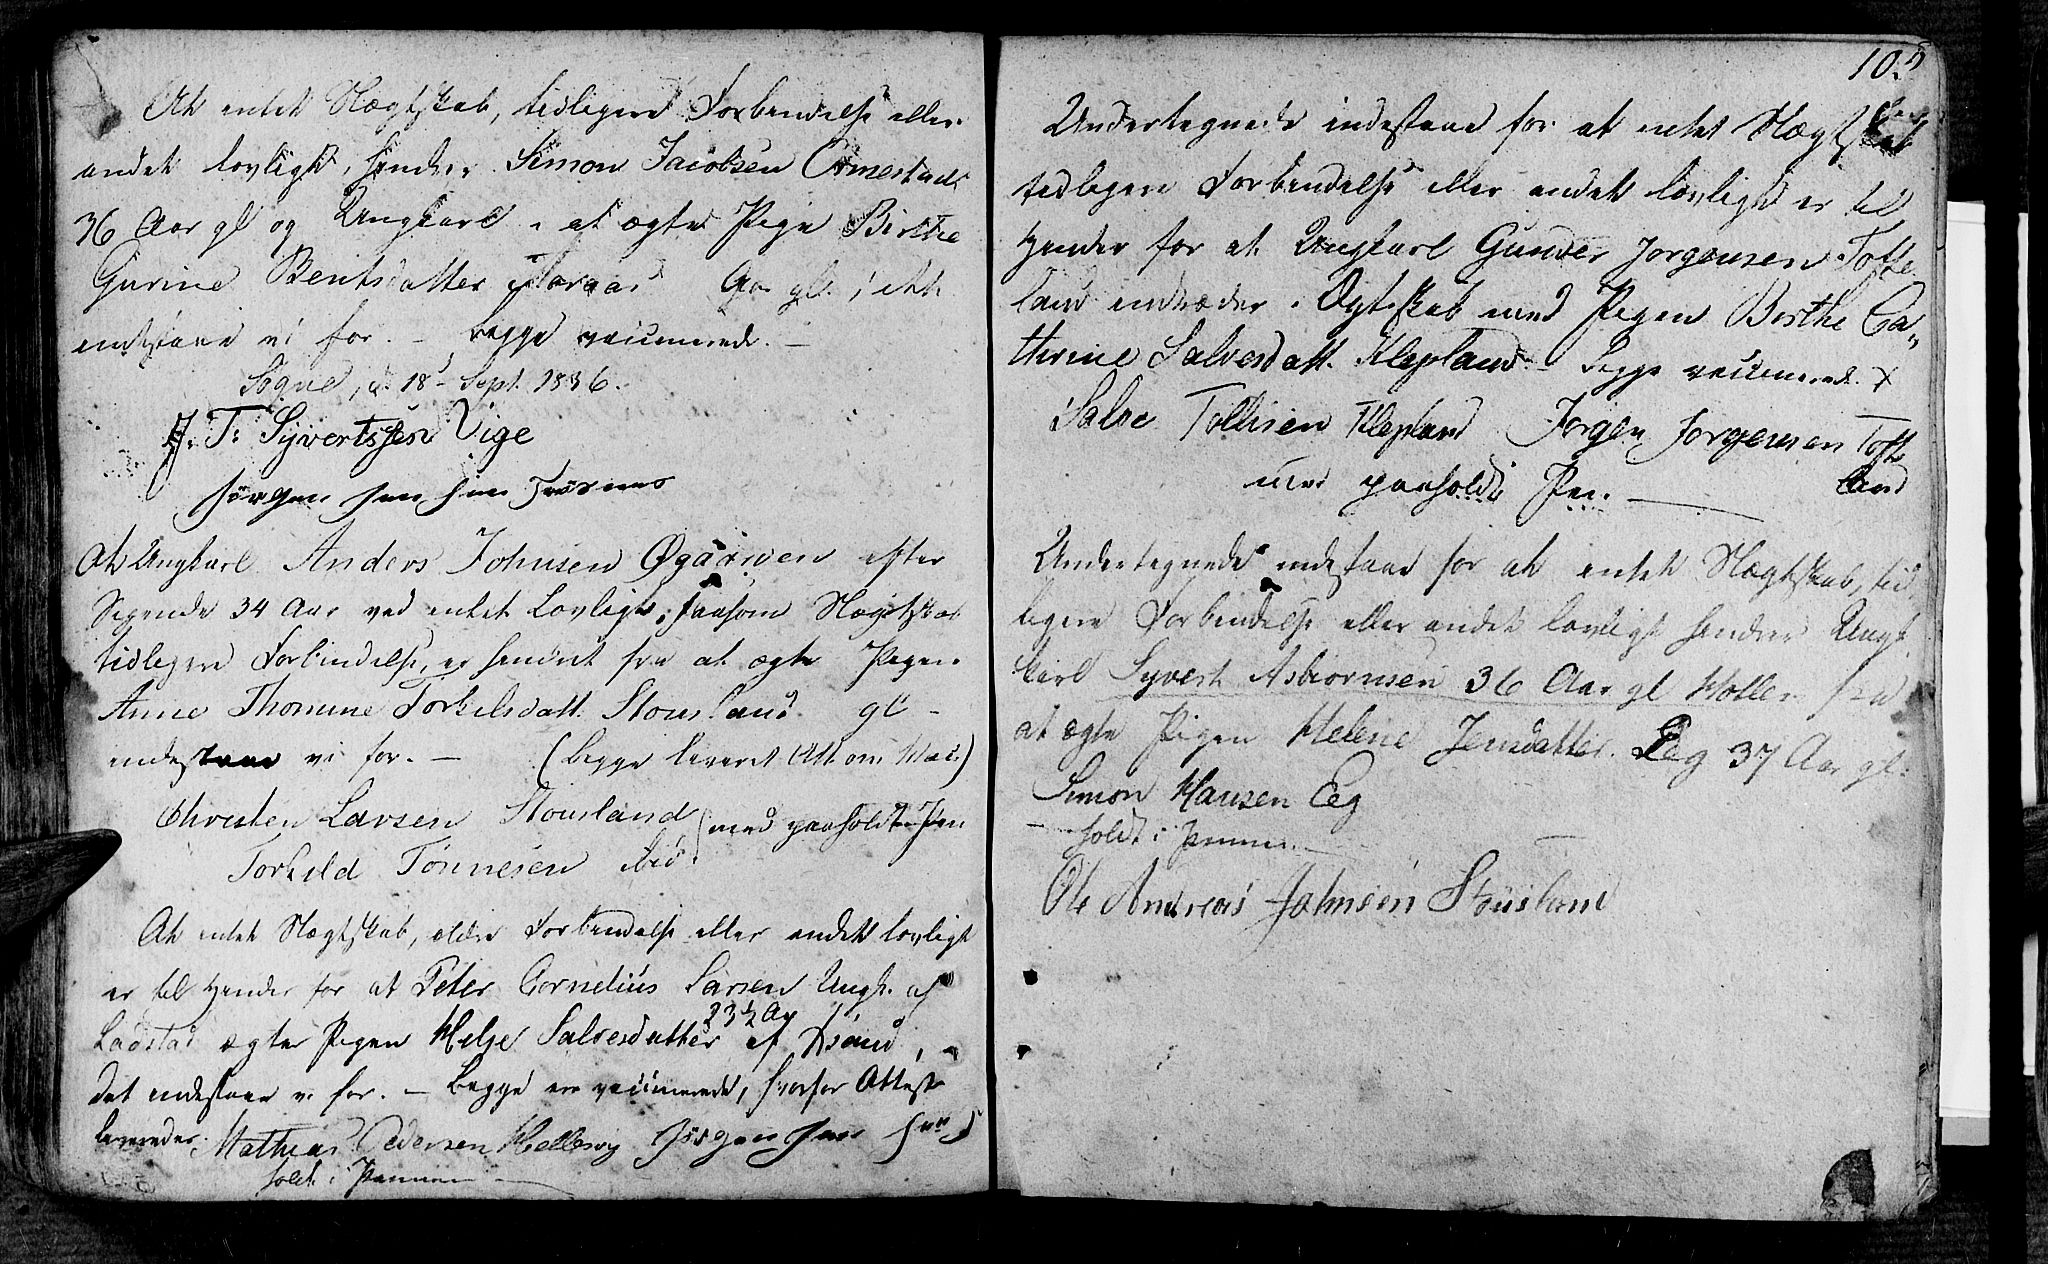 At intet Slægtskab, tidligere Forbindelse eller
andet lovligt hindrer Simon Jacobsen Omestad
36 Aar gl og Ungkarl i at ægte Pige Birthe
Gurine Bentsdatter Aar gl.
indestaae vi for. – begge vaccinerede. –
Søgne, d 18 Sept. 1836.
J. T. Syvertssen Vige
Jørgen Jensen
At Ungkarl Anders Johnsen Øgaarden efter
Sigende 34 Aar ved intet Lovligt, saasom Slægtskab
tidligere Forbindelse, er hindret fra at ægte Pigen
Anne Thomine Torkelsdatt. Stousland gl –
indestaae vi for. – (begge leveret Att. om Vac.)
Christen Larsen Stousland
Torkild Tønnesen ibid. (med paaholdt Pen
At intet Slægtskab, ældre Forbindelse eller andet lovligt
er til Hinder for at Peter Cornelius Larsen Ungk. af
23½ Ar
Ladstad ægter Pigen Helje Salvesdatter af
det indestaae vi for. – begge ere vaccinerede, hvorfor Attest
leveredes.
Mathias Pedersen Hellevig Jørgen Jensen
holdt i Pennen
10
Undertegnede indestaae for at intet Slægtskab
tidligere Forbindelse eller andet lovligt er til
Hinder for at Ungkarl Gunder Jørgensen Tofte
land indtræder i Ægteskab med Pigen Birthe Ca„
thrine Salvesdatt. Klepland – begge vaccinerede. +
Salve Tollisen Klepland Jørgen Jørgensen Tofte
med paaholdt Pen. land
Undertegnede indestaae for at intet Slægtskab, tid
ligere Forbindelse eller andet lovligt hindrer Ungk.
karl Syvert Asbiørnsen 36 Aar gl Holler fra
at ægte Pigen Helene Jensdatter Eeg 37 Aar gl.
Simon Hansen Eeg
holdt i Pennen
Ole Andreas Johnsen Stousland